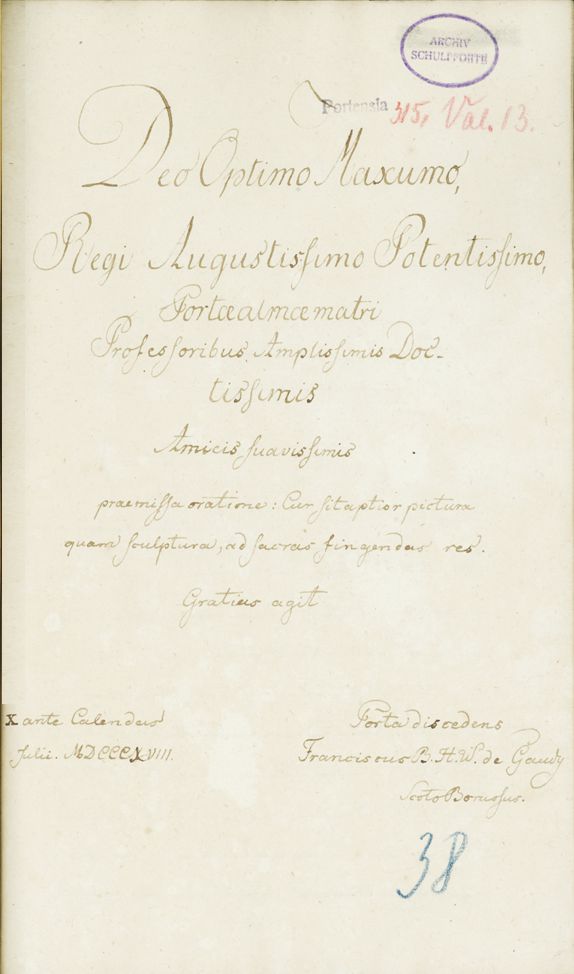 ARCHIV
SCHULPFORTE
Portensia 315, Val. 13.
Deo Optimo Maxumo,
Regi Augustissimo Potentissimo,
Portae almae matri
Professoribus Amplissimis Doc-
tissimis
Amicis suavissimis
praemissa oratione: Cur sit aptior pictura
quam sculptura, ad sacras fingendas res.
Gratias agit
X ante Calendas
Julii. MDCCCXVIII.
Porta discedens
Franciscus B. H. W. de Gaudy
Scoto Borussus.
38